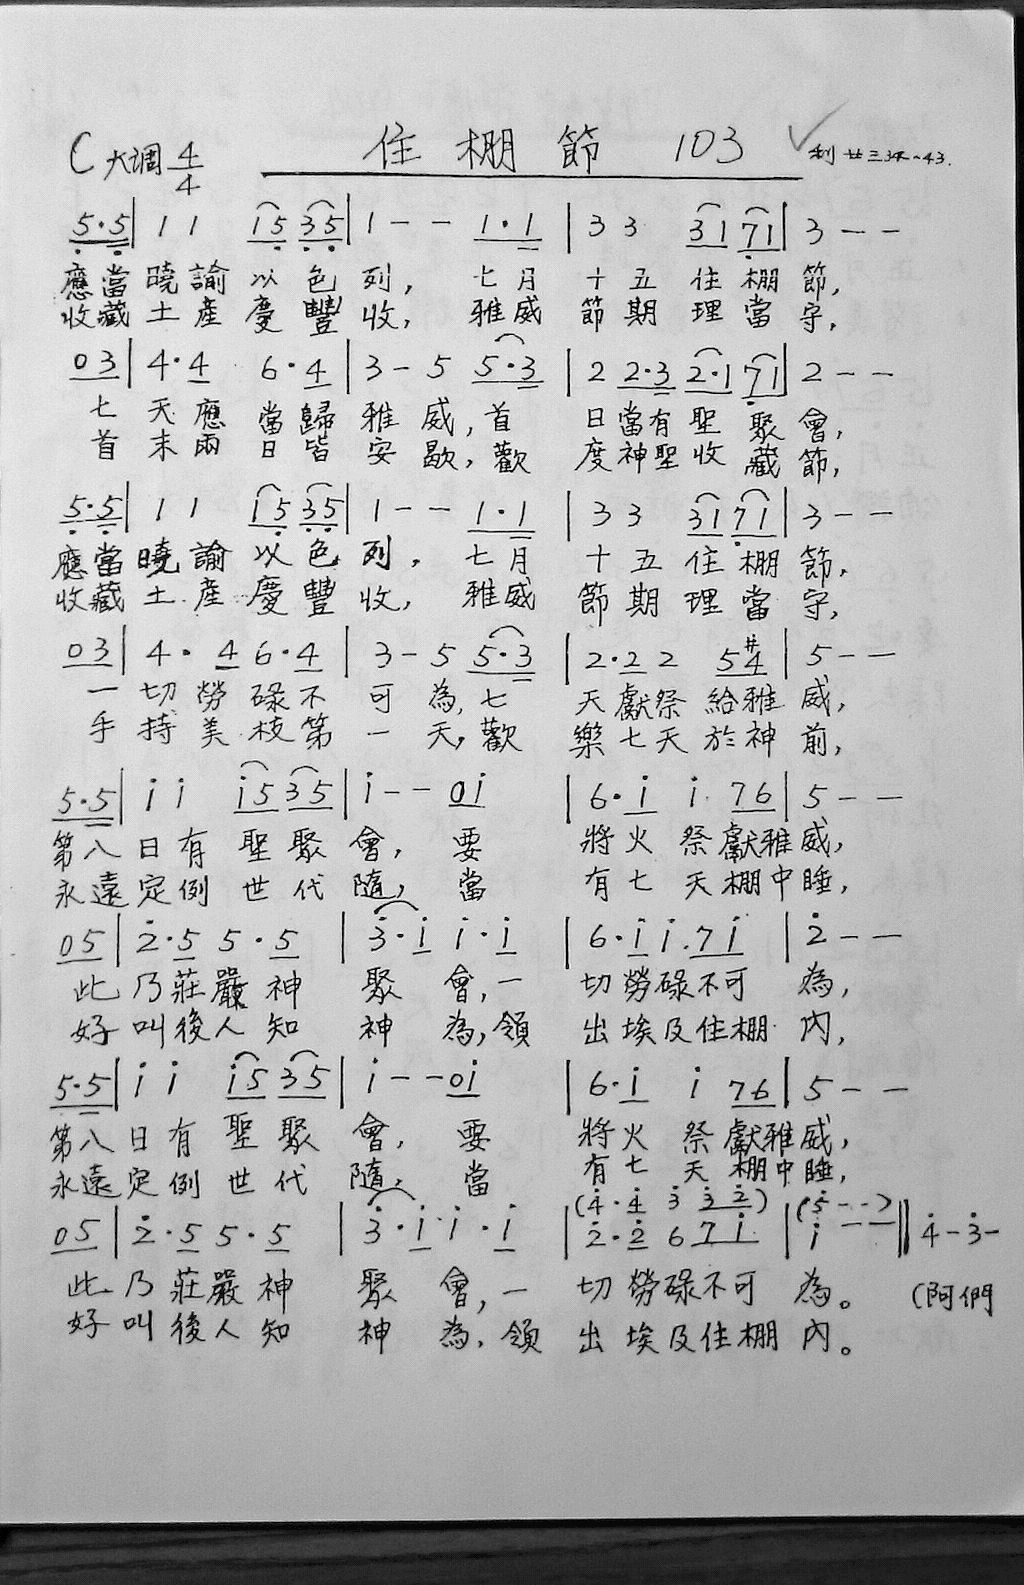 C大调 4/4 住棚節 103 利廿三34~43.
5·5 | 1 1 1 5 3 5 | 1 - - 1·1 | 3 3 3 1 7 1 | 3 - -
應當曉諭以色列，七月十五住棚節，
收藏土產慶豐收，雅威節期理當守，
0 3 | 4·4 6·4 | 3 - 5 5·3 | 2 2·3 2·1 7 1 | 2 - -
七天應當歸雅威，首日當有聖聚會，
首末兩日皆安歇，歡度神聖收藏節，
5·5 | 1 1 1 5 3 5 | 1 - - 1·1 | 3 3 3 1 7 1 | 3 - -
應當曉諭以色列，七月十五住棚節，
收藏土產慶豐收，雅威節期理當守，
0 3 | 4·4 6·4 | 3 - 5 5·3 | 2·2 2 5 #4 | 5 - -
一切勞碌不可為，七天獻祭給雅威，
手持美枝第一天，歡樂七天於神前，
5·5 | i i i 5 3 5 | i - - 0 i | 6·i i 7 6 | 5 - -
第八日有聖聚會，要將火祭獻雅威，
永遠定例世代隨，當有七天棚中睡，
0 5 | 2̇·5 5·5 | 3̇·i i·i | 6·i i·7 i | 2̇ - -
此乃莊嚴神聚會，一切勞碌不可為，
好叫後人知神為，領出埃及住棚內，
5·5 | i i i 5 3 5 | i - - 0 i | 6·i i 7 6 | 5 - -
第八日有聖聚會，要將火祭獻雅威，
永遠定例世代隨，當有七天棚中睡，
(4̇·4̇ 3̇ 3̇ 2̇) (5̇ - - -)
0 5 | 2̇·5 5·5 | 3̇·i i·i | 2̇·2̇ 6 7 i | i - - || 4̇ - 3̇ -
此乃莊嚴神聚會，一切勞碌不可為。(阿們
好叫後人知神為，領出埃及住棚內。